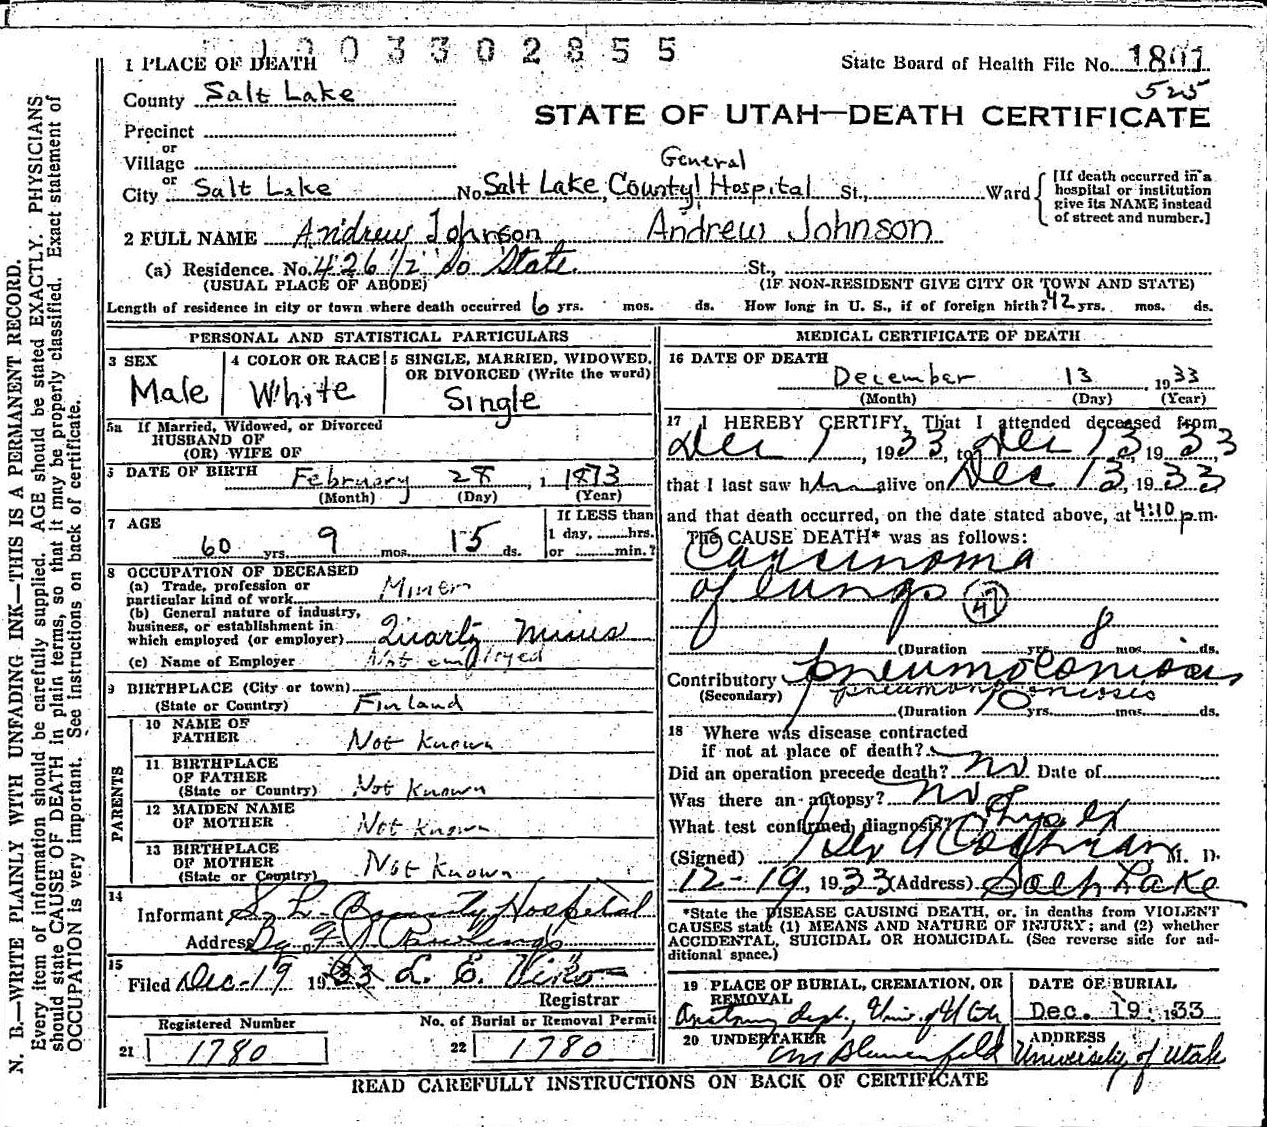 1003302855
1 PLACE OF DEATH
State Board of Health File No. 1801
525
County Salt Lake
STATE OF UTAH—DEATH CERTIFICATE
Precinct
or
Village
or
General
City Salt Lake No. Salt Lake, County Hospital St., Ward
[If death occurred in a
hospital or institution
give its NAME instead
of street and number.]
2 FULL NAME Andrew Johnson Andrew Johnson
(a) Residence. No. 426 1/2 So State St.,
(USUAL PLACE OF ABODE) (IF NON-RESIDENT GIVE CITY OR TOWN AND STATE)
Length of residence in city or town where death occurred 6 yrs. mos. ds. How long in U. S., if of foreign birth? 42 yrs. mos. ds.
PERSONAL AND STATISTICAL PARTICULARS
3 SEX 4 COLOR OR RACE 5 SINGLE, MARRIED, WIDOWED,
OR DIVORCED (Write the word)
Male White Single
5a If Married, Widowed, or Divorced
HUSBAND OF
(OR) WIFE OF
5 DATE OF BIRTH February 28, 1 1873
(Month) (Day) (Year)
7 AGE
If LESS than
1 day, hrs.
or min.?
60 yrs. 9 mos. 15 ds.
8 OCCUPATION OF DECEASED
(a) Trade, profession or
particular kind of work Miner
(b) General nature of industry,
business, or establishment in
which employed (or employer) Quartz Mines
(c) Name of Employer Not employed
9 BIRTHPLACE (City or town)
(State or Country) Finland
PARENTS
10 NAME OF
FATHER Not Known
11 BIRTHPLACE
OF FATHER
(State or Country) Not Known
12 MAIDEN NAME
OF MOTHER Not Known
13 BIRTHPLACE
OF MOTHER
(State or Country) Not Known
14
Informant S. L. County Hospital
Address By
15
Filed Dec-19 1933 L. E. Viko
Registrar
Registered Number No. of Burial or Removal Permit
21 1780 22 1780
MEDICAL CERTIFICATE OF DEATH
16 DATE OF DEATH
December 13, 1933
(Month) (Day) (Year)
17 I HEREBY CERTIFY, That I attended deceased from
Dec 1, 1933, to Dec 13, 1933
that I last saw him alive on Dec 13, 1933
and that death occurred, on the date stated above, at 4:10 p.m.
The CAUSE DEATH* was as follows:
Carcinoma
of lungs 47
8
(Duration yrs. mos. ds.
Contributory pneumoconiosis
(Secondary) pneumonoconiosis
(Duration 10 yrs. mos. ds.
18 Where was disease contracted
if not at place of death?
Did an operation precede death? no Date of
Was there an autopsy? no
What test confirmed diagnosis? Phys ex
(Signed) M. D.
12-19, 1933 (Address) Salt Lake
*State the DISEASE CAUSING DEATH, or, in deaths from VIOLENT
CAUSES state (1) MEANS AND NATURE OF INJURY; and (2) whether
ACCIDENTAL, SUICIDAL OR HOMICIDAL. (See reverse side for ad-
ditional space.)
19 PLACE OF BURIAL, CREMATION, OR
REMOVAL
DATE OF BURIAL
Anatomy dept., Univ. of Utah Dec. 19, 1933
20 UNDERTAKER ADDRESS
Blumenfeld University of Utah
READ CAREFULLY INSTRUCTIONS ON BACK OF CERTIFICATE
N. B.—WRITE PLAINLY WITH UNFADING INK—THIS IS A PERMANENT RECORD.
Every item of information should be carefully supplied. AGE should be stated EXACTLY. PHYSICIANS
should state CAUSE OF DEATH in plain terms, so that it may be properly classified. Exact statement of
OCCUPATION is very important. See Instructions on back of certificate.